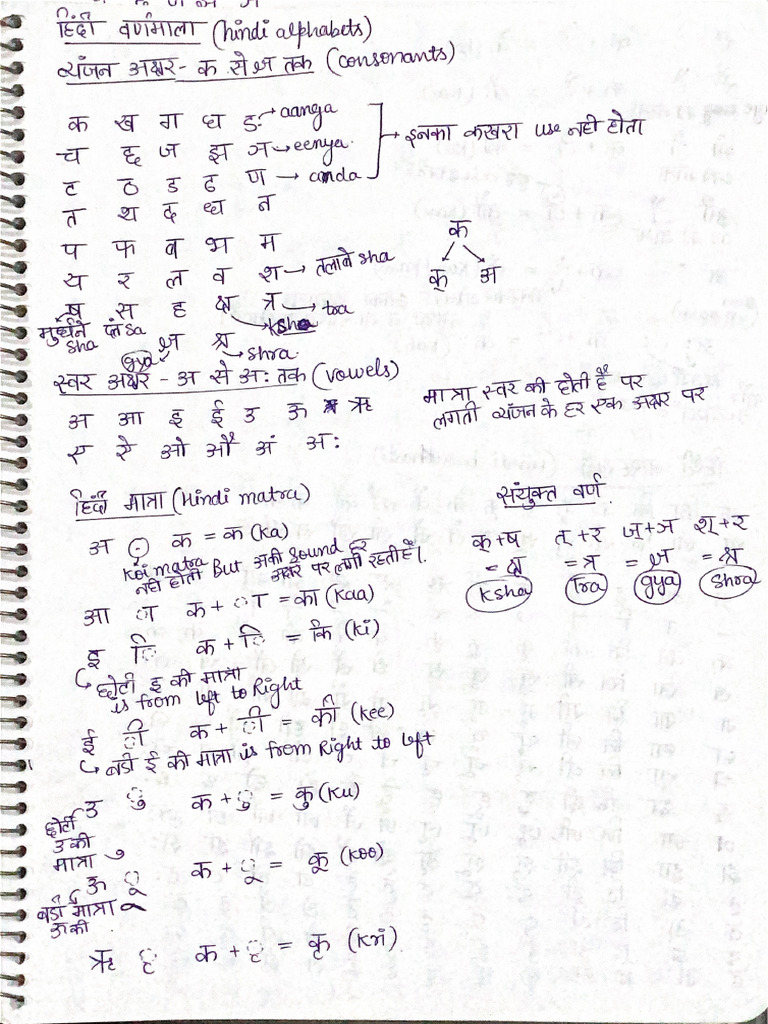 हिंदी वर्णमाला (hindi alphabets)
व्यंजन अक्षर - क से ज्ञ तक (consonants)
क ख ग घ ङ → aanga
च छ ज झ ञ → eenya
ट ठ ड ढ ण → anda
→ इनका कखरा use नही होता
त थ द ध न
प फ ब भ म
य र ल व श → तलावे sha
ष स ह क्ष त्र → tra
मुर्धने sha
sa
Ksha
ज्ञ श्र
gya
→ shra
क
क् अ
स्वर अक्षर - अ से अः तक (vowels)
अ आ इ ई उ ऊ ऋ
ए ऐ ओ औ अं अः
मात्रा स्वर की होती है पर
लगती व्यंजन के हर एक अक्षर पर
हिंदी मात्रा (Hindi matra)
अ क = क (Ka)
Koi matra नही होती But अकी Sound हर अक्षर पर लगी रहती हैं।
आ ा क + ा = का (Kaa)
इ ि क + ि = कि (Ki)
→ छोटी इ की मात्रा
is from left to Right
ई ी क + ी = की (Kee)
→ बडी ई की मात्रा is from Right to left
उ ु क + ु = कु (Ku)
छोटी
उ की
मात्रा ु
ऊ ू क + ू = कू (Koo)
बडी मात्रा ू
ऊ की
ऋ ृ क + ृ = कृ (Kri)
संयुक्त वर्ण
क् + ष त् + र ज् + ञ श् + र
= क्ष = त्र = ज्ञ = श्र
Ksha Tra gya Shra